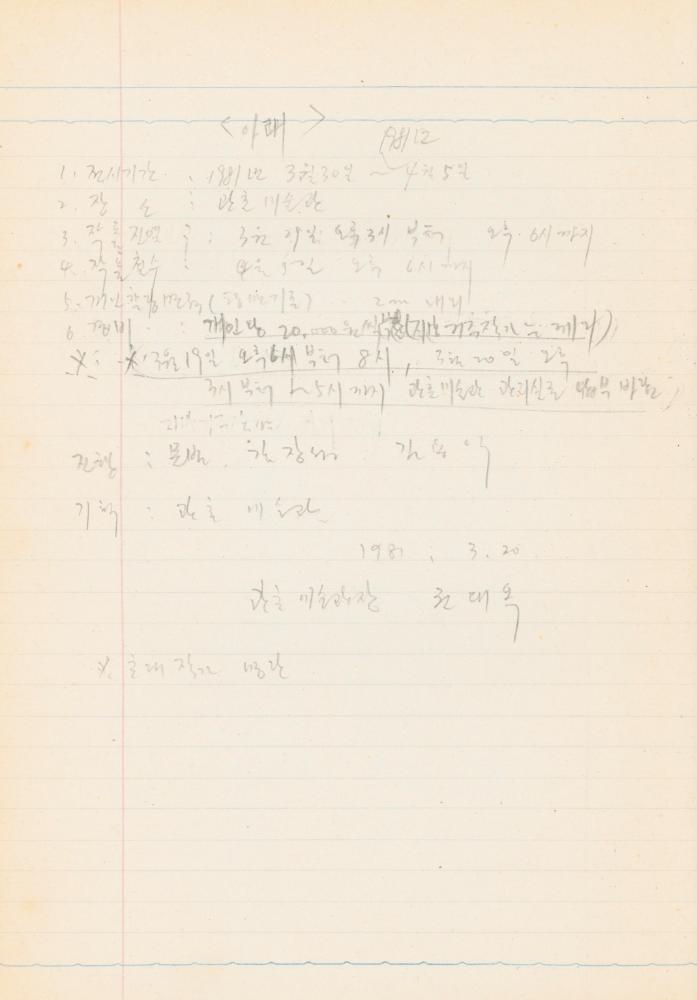 < 아래 >
1981년
1. 전시기간 : 1981년 3월 30일 ~ 4월 5일
2. 장 소 : 관훈미술관
3. 작품진열 : 3월 29일 오후 3시 부터 오후 6시까지
4. 작품철수 : 4월 5일 오후 6시까지
5. 개인 (평면기준) 2m 내외
6. 경비 : 개인당 20,000원씩 작가는 제외)
※ : ※ 3월 19일 오후 6시 부터 8시, 3월 20일 오후
3시 부터 ~ 5시 까지 관훈미술관 관리실로 납부 바람)
진행 : 문범, 김장섭, 김용익
기획 : 관훈 미술관
1981. 3. 20
관훈 미술관장 권대옥
※ 초대 작가 명단